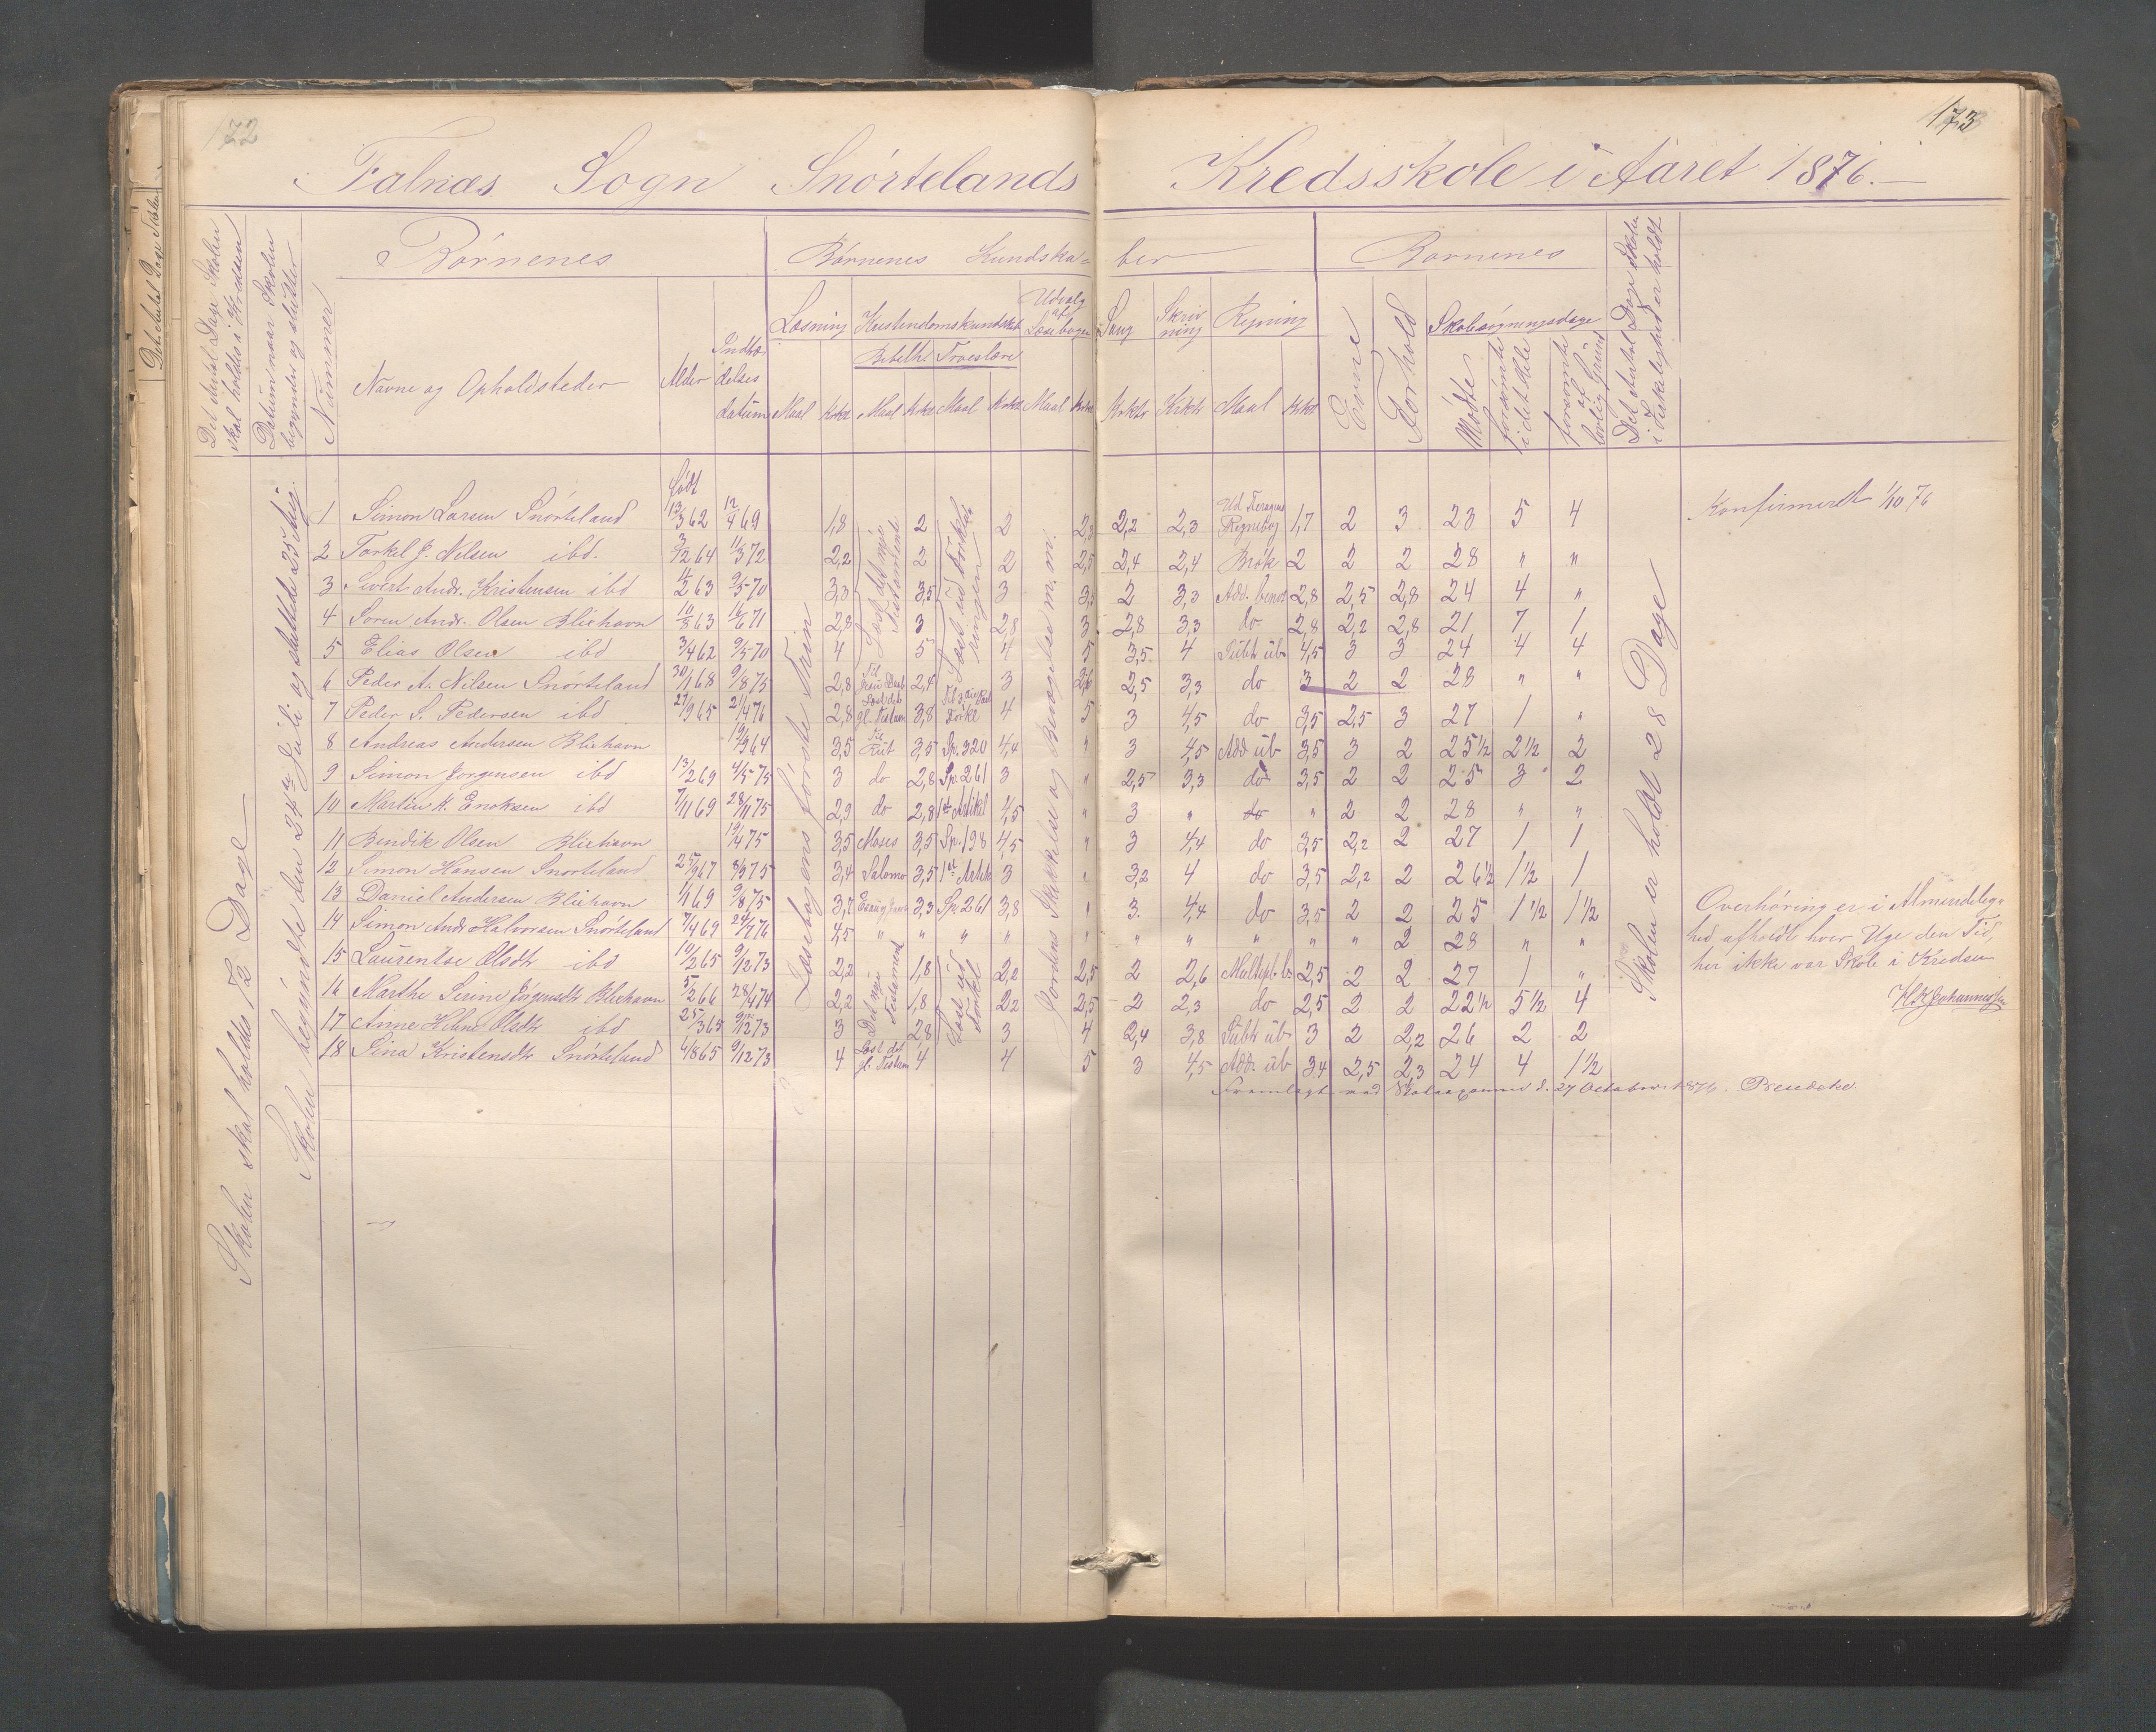 172
173
Falnæs Sogn Snørtelands Kredsskole i Aaret 1876.
Det Antal Dage Skolen skal holdes i Kredsen
Datum naar Skolen begynder og slutter
Nummer
Børnenes
Navne og Opholdsteder
Alder
Indtrædelses datum
Børnenes Kundskaber
Læsning
Kristendomskundskab
Udvalg af Læsebogen
Sang
Skrivning
Regning
Bibelhi Troeslære
Maal
Evne
Forhold
Børnenes
Skolesøgningsdage
Mødte
forsømte i det Hele
forsømte af lovlig Grund
Det Antal Dage Skolen i Virkeligheden er holdt
Skolen skal holdes 72 Dage
Skolen begyndte den 24de Juli og sluttede 25 Aug
Læsebogens første Trin
Læst det nye Testamente
Læst ud Forklaringen
Jordens Skikkelse og Bevægelse m. m.
Skolen er holdt 28 Dage
født
1 Simon Larsen Snørteland 13/3 62 12/4 69 1,8 2 2 2,3 2,2 2,3 Ud Regnebog 1,7 2 3 23 5 4 Konfirmeret 1/10 76
2 Torkel J. Nilsen ibd. 3/12 64 11/3 72 2,2 2 2 2,5 2,4 2,4 Brøk 2 2 2 28 " "
3 Sivert Andr. Kristensen ibd 14/2 63 9/5 70 3,3 3,5 3 3,5 2 3,3 Add. benæ 2,8 2,5 2,8 24 4 "
4 Søren Andr. Olsen Bliehavn 10/8 63 16/6 71 2,8 3 2,8 3 2,8 3,3 do 2,8 2,2 2,8 21 7 1
5 Elias Olsen ibd 3/4 62 9/5 70 4 5 4 5 3,5 4 Subtr üb 4,5 3 3 24 4 4
6 Peder A. Nilsen Snørteland 30/1 68 9/8 75 2,8 Til Jesu Daab 2,4 3 2,6 2,5 3,3 do 3 2 2 28 " "
7 Peder S. Pedersen ibd 27/9 65 21/4 76 2,8 Læst det gl. Testam 3,8 Forkl 4 5 3 4,5 do 3,5 2,5 3 27 1 "
8 Andreas Andersen Bliehavn 19/3 64 3,5 Til Rut 3,5 Sp. 320 4,4 " 3 4,5 Add üb 3,5 3 2 25 1/2 2 1/2 2
9 Simon Jørgensen ibd 13/2 69 4/5 75 3 do 2,8 Sp. 261 3 " 2,5 3,3 do 3,5 2 2 25 3 2
10 Martin K. Enoksen ibd 7/11 69 28/11 75 2,9 do 2,8 1ste Artikl 4,5 " 3 " do " 2 2 28 " "
11 Bendik Olsen Bliehavn 19/4 75 3,5 Moses 3,5 Sp. 198 4,5 " 3 4,4 do 3,5 2,2 2 27 1 1
12 Simon Hansen Snørteland 25/9 67 8/3 75 3,4 Salomo 3,5 1ste Artikl 3 " 3,2 4 do 3,5 2,2 2 26 1/2 1 1/2 1
13 Daniel Andersen Bliehavn 1/1 69 9/8 75 3,7 3,3 Sp. 261 3,8 " 3. 4,4 do 3,5 2 2 25 1 1/2 1 1/2
14 Simon Andr Halvorsen Snørteland 7/4 69 24/7 76 4,5 " " " " " " " " " " 2 28 " "
15 Laurentse Olsdtr ibd 10/2 65 9/12 73 2,2 1,8 2,2 2,5 2 2,6 Multipl. b. 2,5 2 2 27 1 "
16 Marthe Serine Jørgensdtr Bliehavn 5/2 66 28/4 74 2,2 1,8 2,2 2,5 2 2,3 do 2,5 2 2 22 1/2 5 1/2 4
17 Anne Helene Olsdtr ibd 25/3 65 9/12 73 3 2,8 3 4 2,4 3,8 Subtr üb 3 2 2,2 26 2 2
18 Sina Kristensdtr Snørteland 6/8 65 9/12 73 4 Læst det gl. Testam 4 4 5 3 4,5 Add. üb 3,4 2,5 2,3 24 4 1 1/2
Det nye Testament
Læst ud Forkl
Overhøringer i Almindelig-
hed afholdt hver Uge den Tid,
her ikke var Skole i Kredsen
K. K. Johannessen
Fremlagt ved 27 October 1876.
Det Antal Dage Skolen